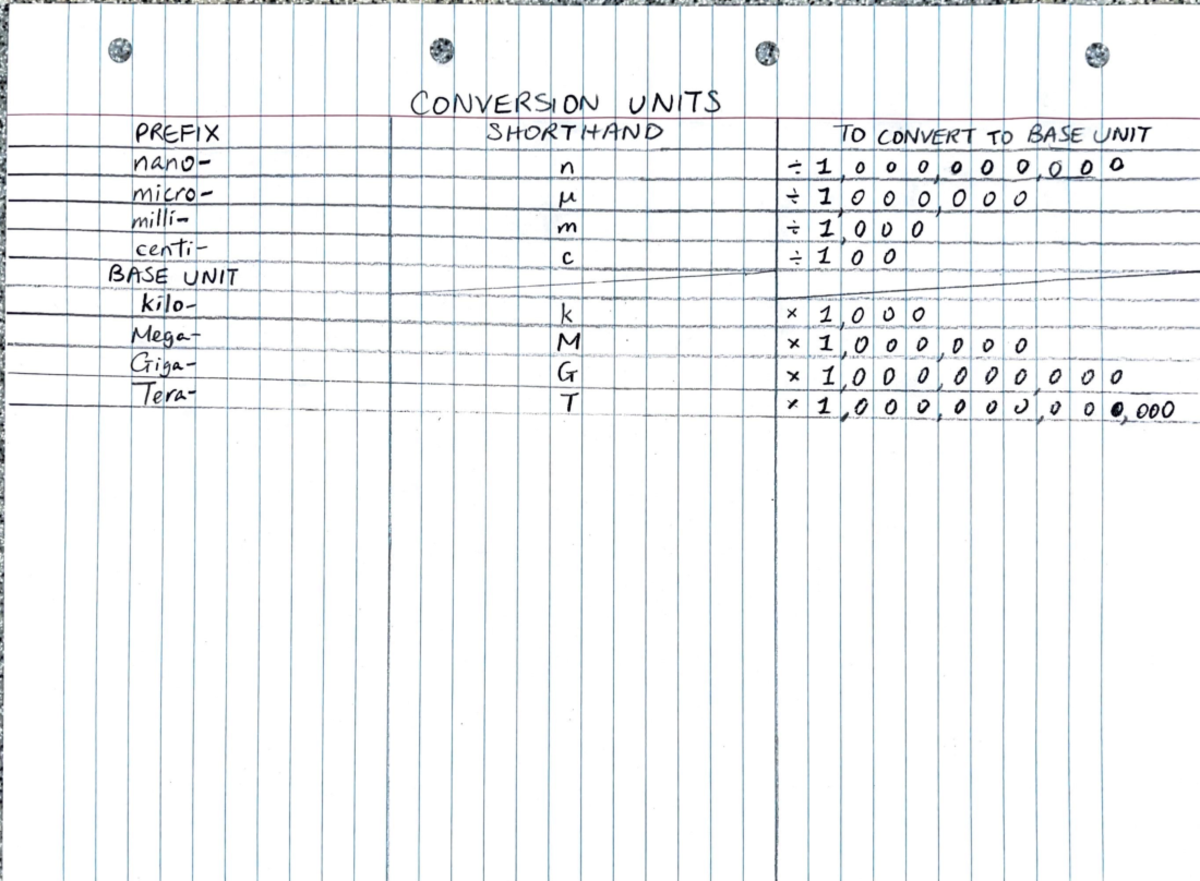 CONVERSION UNITS
PREFIX SHORTHAND TO CONVERT TO BASE UNIT
nano- n ÷ 1,000,000,000
micro- μ ÷ 1,000,000
milli- m ÷ 1,000
centi- c ÷ 100
BASE UNIT
kilo- k × 1,000
Mega- M × 1,000,000
Giga- G × 1,000,000,000
Tera- T × 1,000,000,000,000